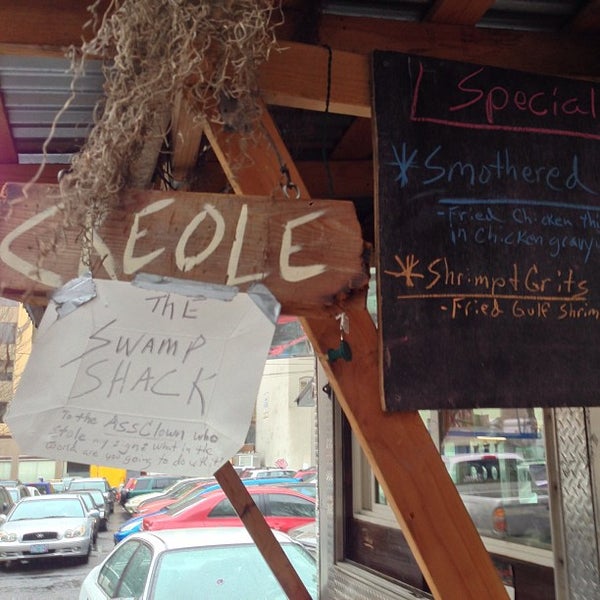 CREOLE
THE
SWAMP
SHACK
To the AssClown who
stole my sign? what in the
world are you going to do w/ it?
Special
*Smothered
-Fried Chicken thi
in chicken gravy
*Shrimp+Grits
-Fried Gulf Shrim